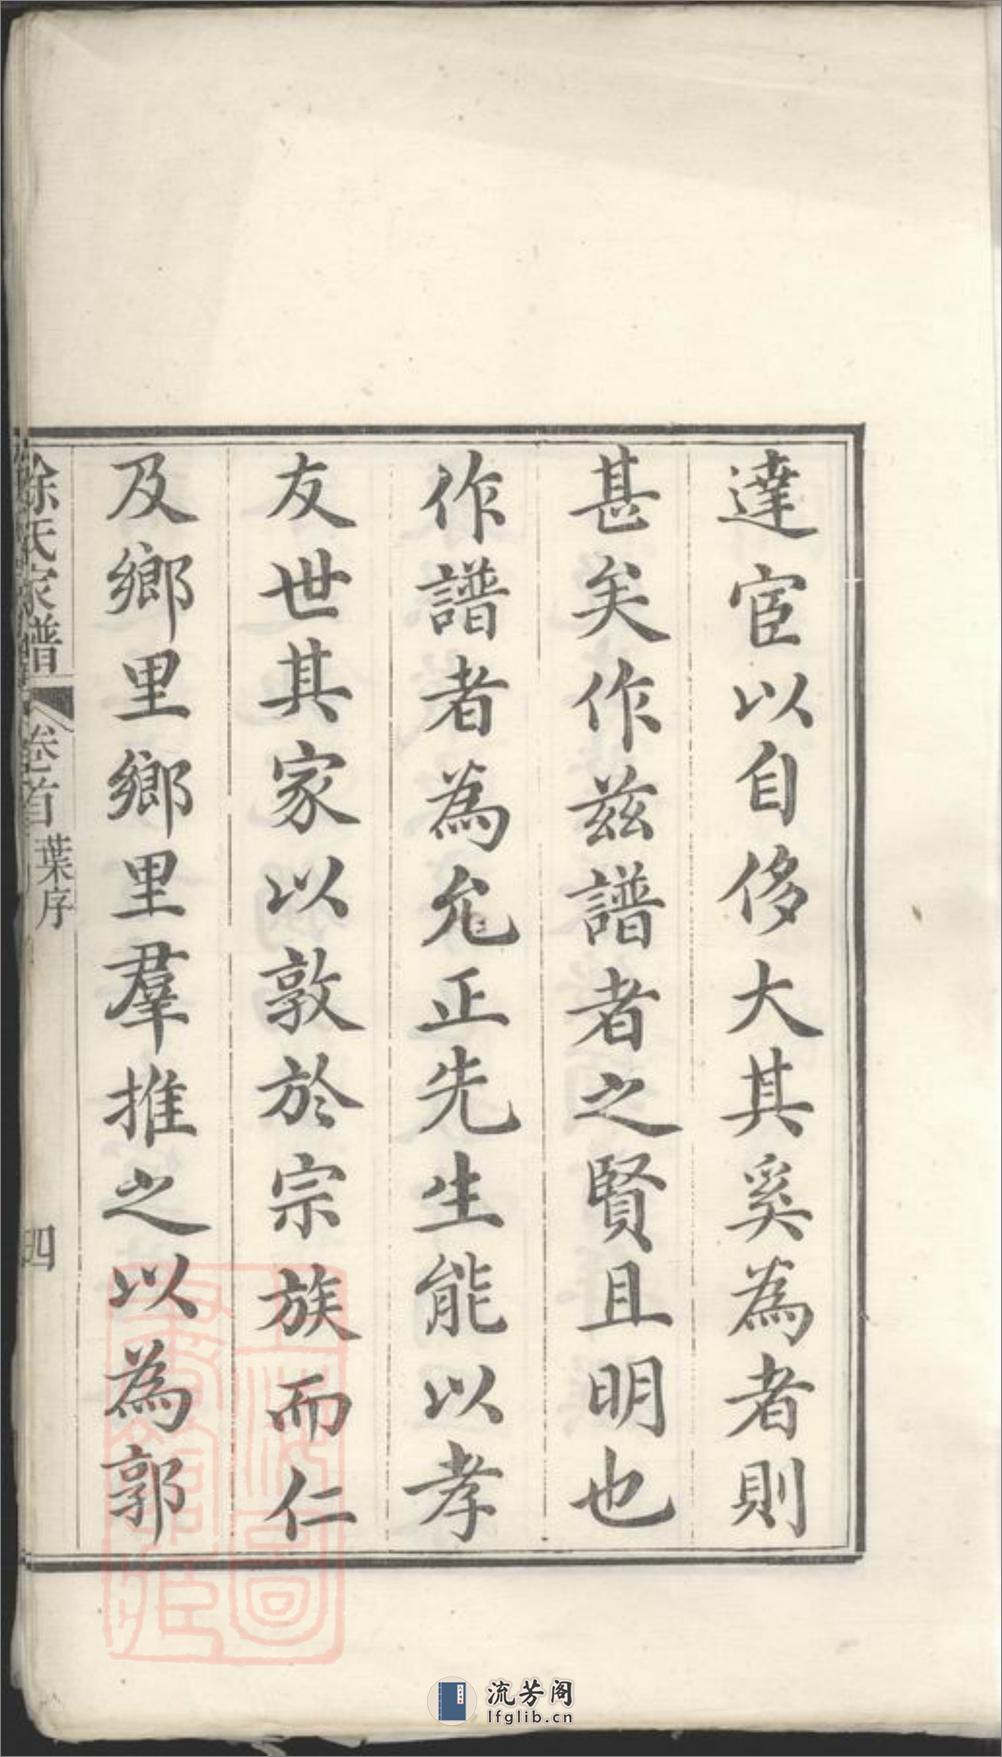 達宦以自侈大其奚為者則
甚矣作茲譜者之賢且明也
作譜者為允正先生能以孝
友世其家以敦於宗族而仁
及鄉里鄉里羣推之以為郭
徐氏家譜 卷首 葉序 四
流芳阁
lfglib.cn